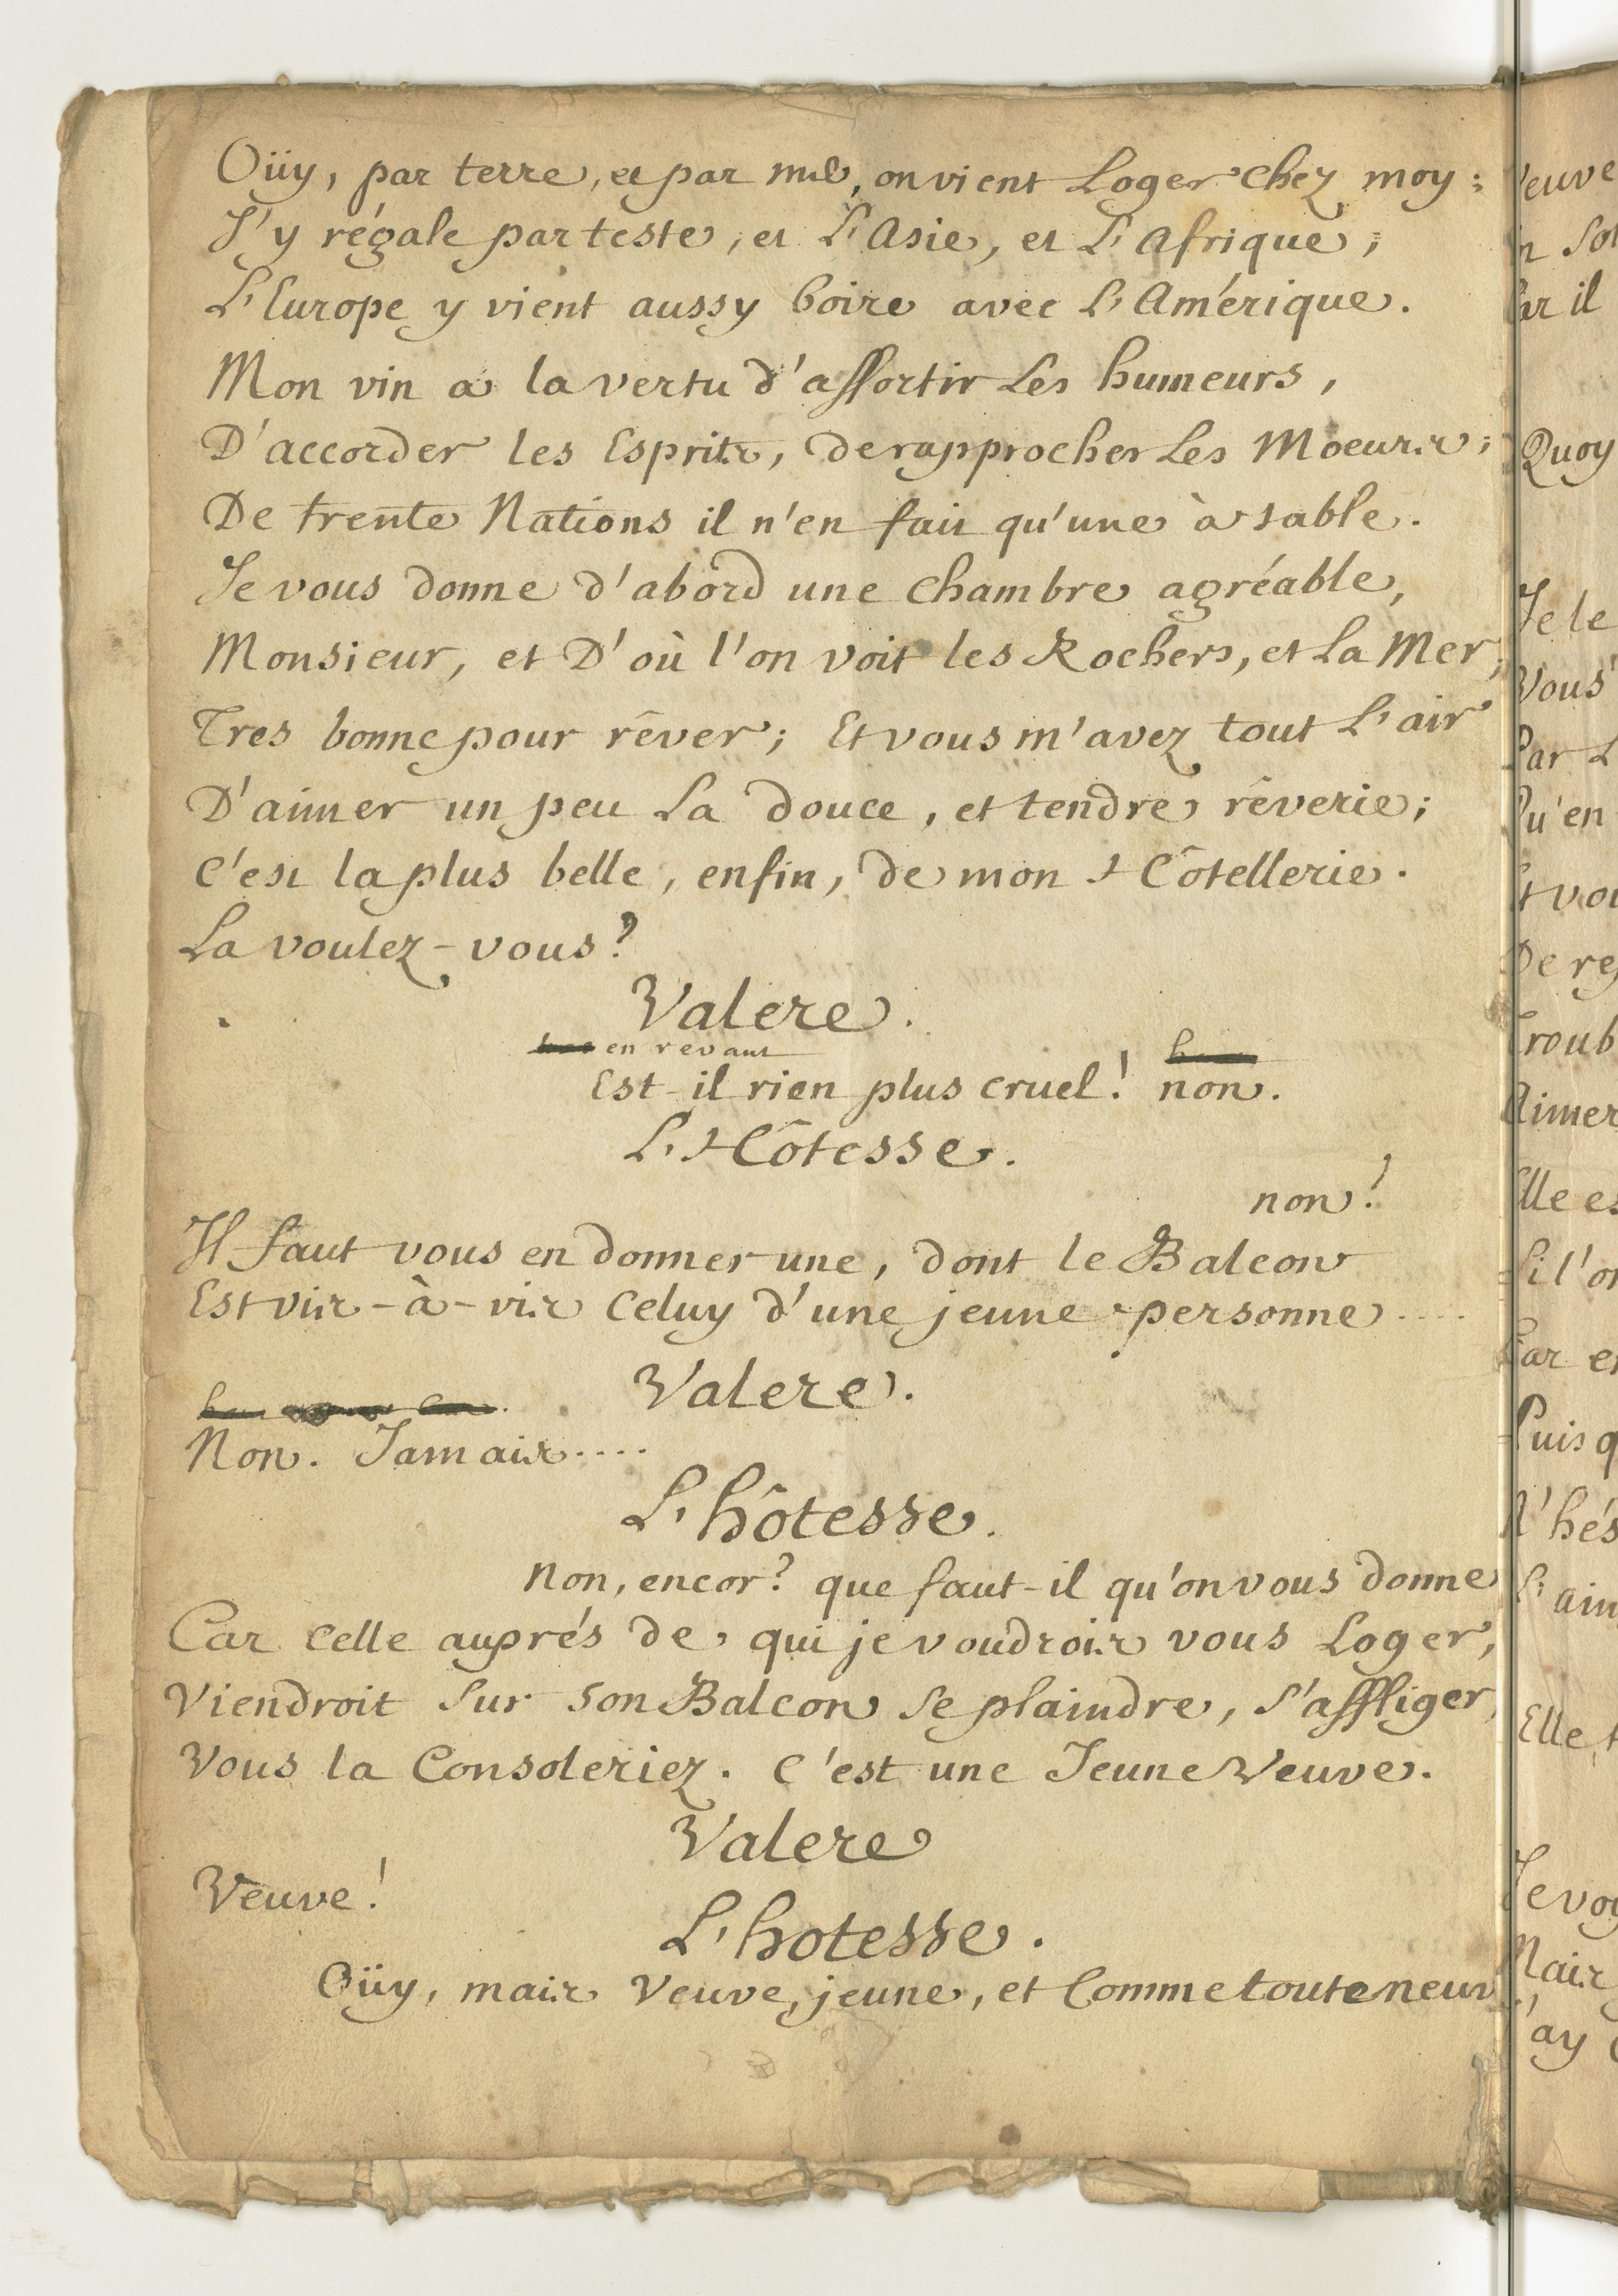 Oüy, par terre, et par mer, on vient Loger chez moy;
J'y régale par teste, et L'Asie, et L'Afrique;
L'Europe y vient aussy boire avec L'Amérique.
Mon vin a la vertu d'assortir Les humeurs,
D'accorder les Esprits, de rapprocher Les Moeurs;
De trente Nations il n'en fait qu'une à table.
Je vous donne d'abord une chambre agréable,
Monsieur, et D'où l'on voit les Rochers, et La Mer,
Tres bonne pour rêver; Et vous m'avez tout L'air
D'aimer un peu La douce, et tendre rêverie;
C'est la plus belle, enfin, de mon Hôtellerie.
La voulez-vous?
Valere.
en revant
Est-il rien plus cruel! non.
L'Hôtesse.
non!
Il faut vous en donner une, dont le Balcon
Est vis-à-vis Celuy d'une jeune personne....
Valere.
Non. Jamais....
L'hôtesse.
Non, encor? que faut-il qu'on vous donne
Car Celle auprés de qui je voudrois vous Loger,
Viendroit Sur son Balcon Se plaindre, S'affliger,
Vous la Consoleriez. C'est une Jeune Veuve.
Valere
Veuve!
L'hotesse.
Oüy, mais Veuve, jeune, et Comme toute neuv